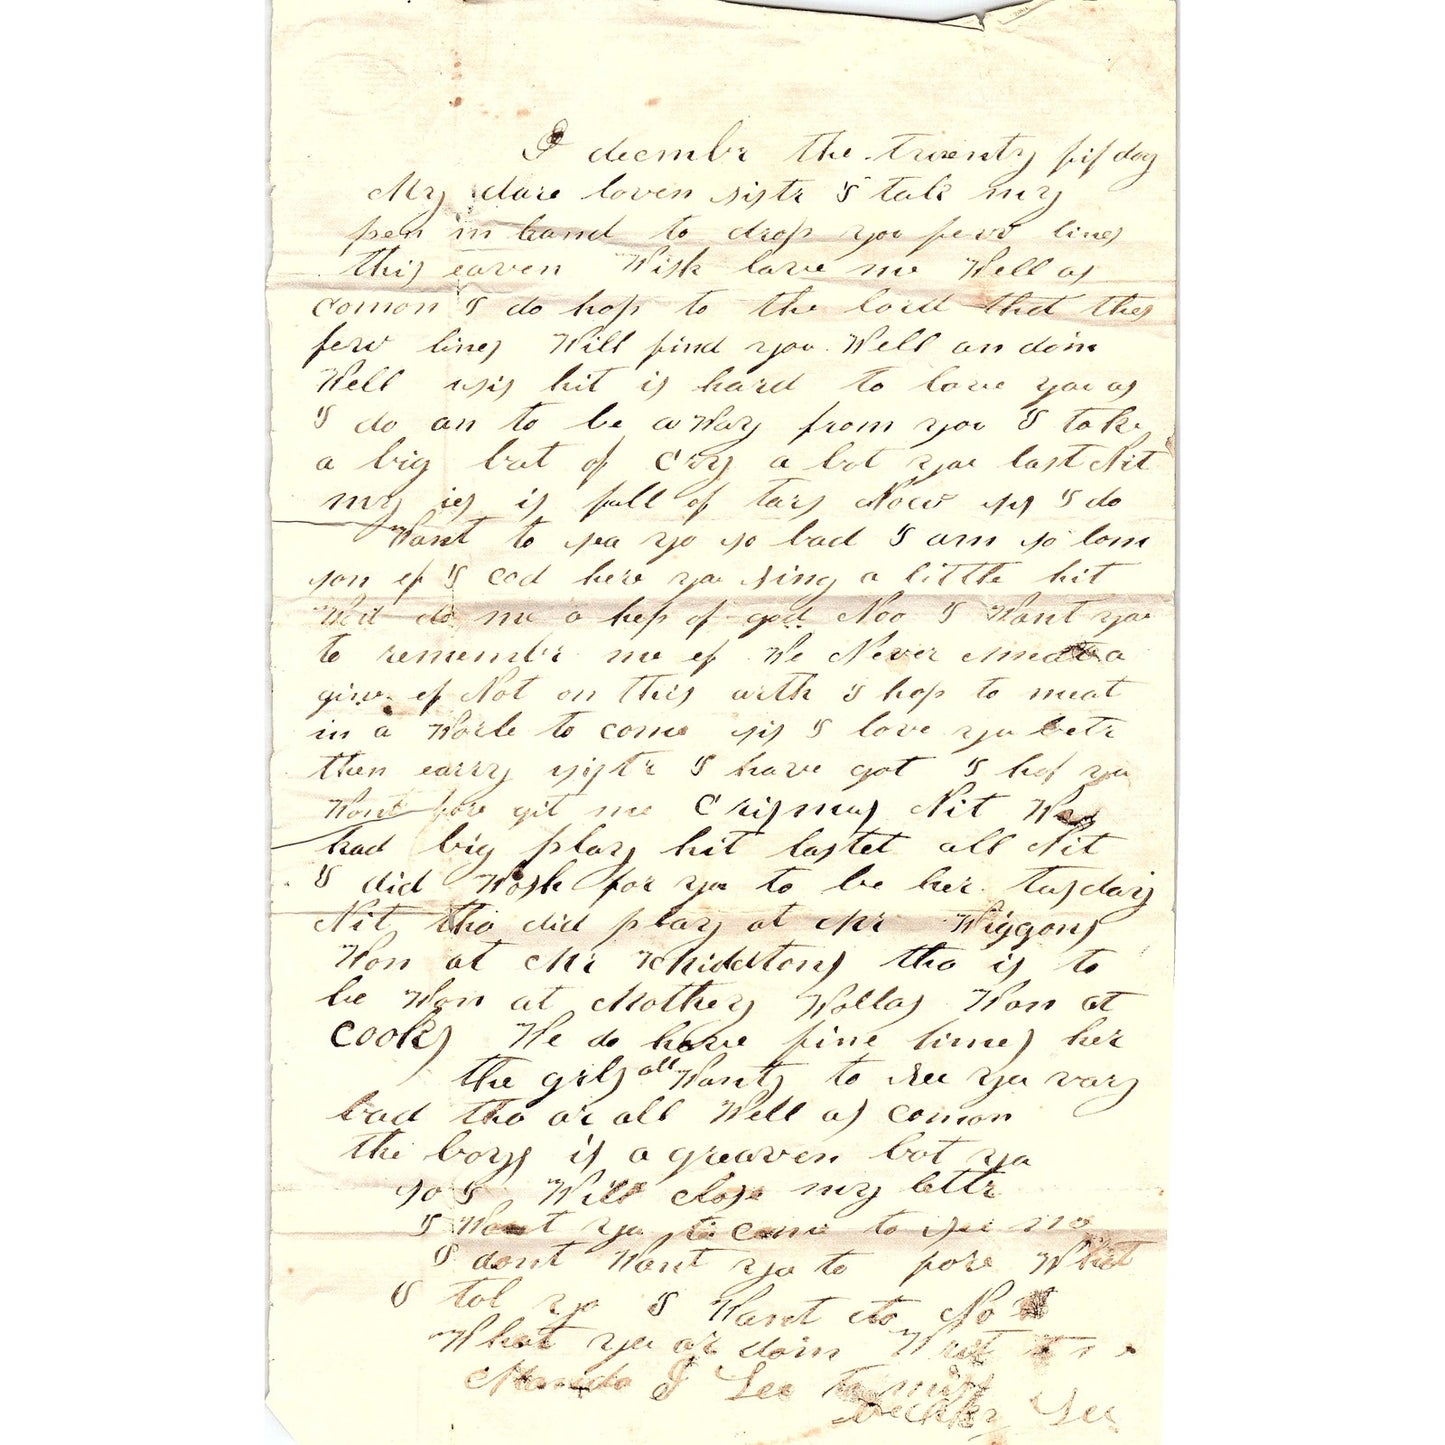 I decmbr the twenty fif day
My dare loven sistr I tak my
pen in hand to drop you few lines
this eaven Wish lave me Well as
comon I do hop to the lord that thes
few lines Will find you Well an doin
Well sis hit is hard to love you as
I do an to be a Way from you I take
a big but of Cry a bot you last Nit
my ies is full of tars Now sis I do
Want to sea yo so bad I am so lom
son ef I cod here ya sing a little hit
Wod do me a hep of god Noo I Want you
to remembr me ef We Never meat a
gin ef Not on this arth I hop to meat
in a Worle to come sis I love ya betr
then earry sistr I have got I hop ya
Wont fore git me Crismas Nit We
had big play hit lastet all Nit
I did Wosh for ya to be her tusday
Nit tha did play at Mr Wiggons
Won at Mr Whiddtons tha is to
be Won at Mothey Wollas Won at
Cooks We do have fine times her
the girls all Wants to see ya vary
bad tha ar all Well as comon
the boys is a greaven bot ya
so I Will close my lettr
I Want ya to come to see me
I dont Want ya to fore What
I tol ya I Want to No
What ya ar doin Writ
Manda J Lee to miss
Beckky Lee